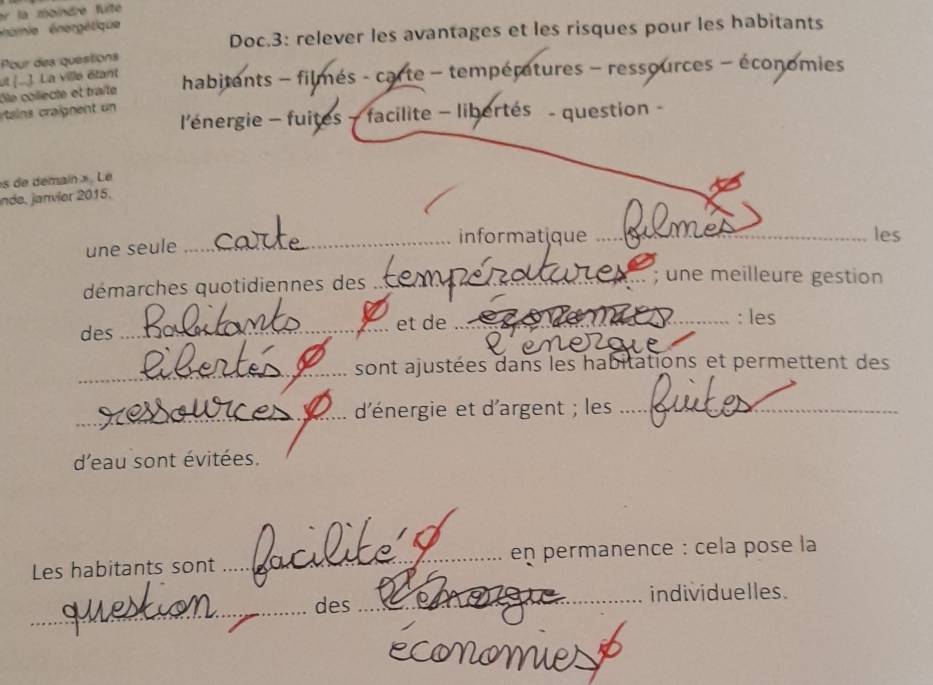 er la moindre fuite
énergétique
Doc.3: relever les avantages et les risques pour les habitants
Pour des questions
ut [...]. La ville étant
habitants – filmés - carte – températures – ressources – économies
collecte et traite
craignent un
l'énergie – fuites – facilite – libertés - question -
s de demain », Le
janvier 2015.
une seule carte informatique filmés les
démarches quotidiennes des températures ; une meilleure gestion
des Habitants et de économies : les
l'energie
libertés sont ajustées dans les habitations et permettent des
ressources d'énergie et d'argent ; les fuites
d'eau sont évitées.
Les habitants sont facilité en permanence : cela pose la
question des individuelles.
économies